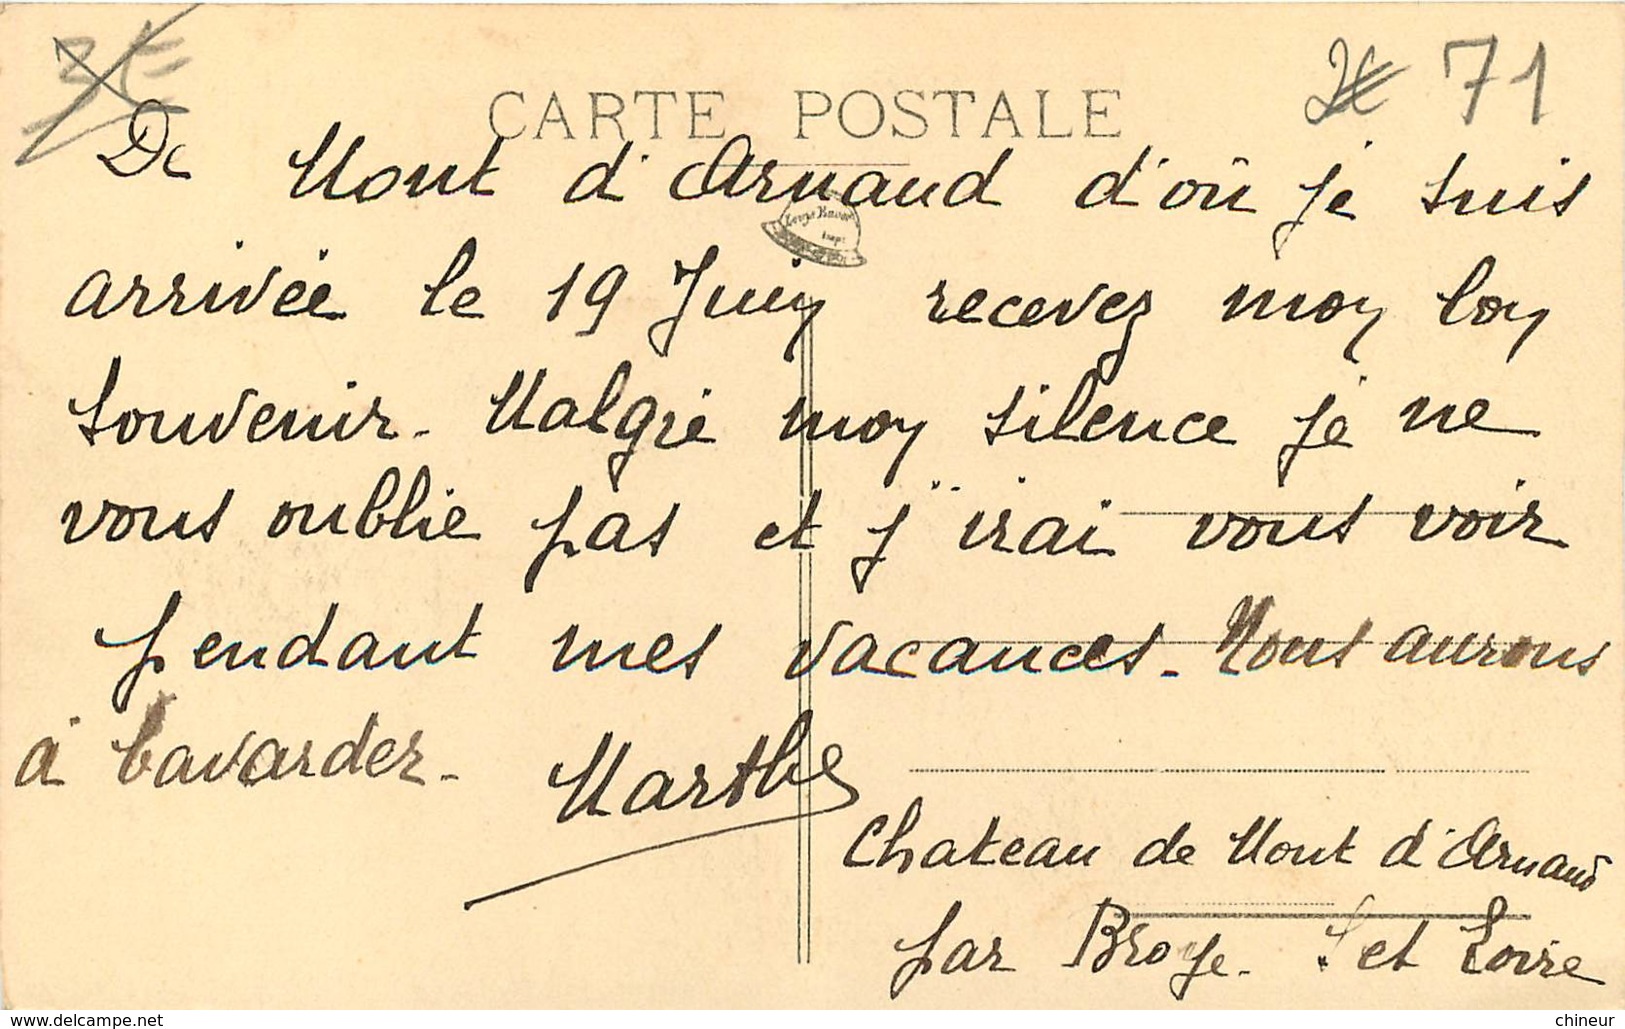 71
CARTE POSTALE
De Mont d'Arnaud d'où je suis
arrivée le 19 Juin recevez mon bon
souvenir. Malgré mon silence je ne
vous oublie pas et j'irai vous voir
pendant mes vacances. Nous aurons
à bavarder. Marthe
Chateau de Mont d'Arnaud
par Broye. S et Loire
chineur